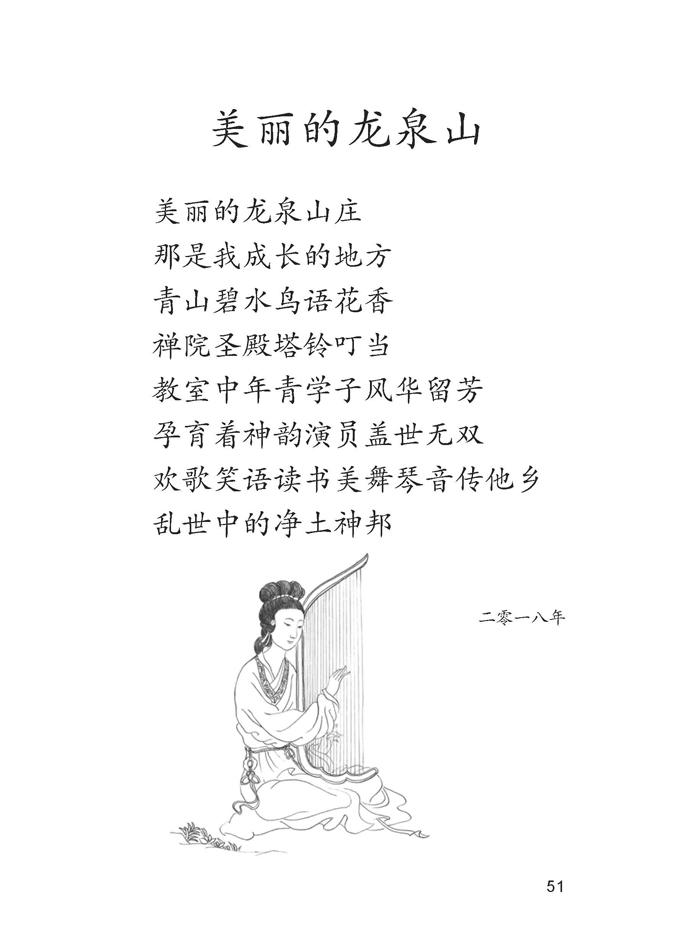 美丽的龙泉山
美丽的龙泉山庄
那是我成长的地方
青山碧水鸟语花香
禅院圣殿塔铃叮当
教室中年青学子风华留芳
孕育着神韵演员盖世无双
欢歌笑语读书美舞琴音传他乡
乱世中的净土神邦
二零一八年
51